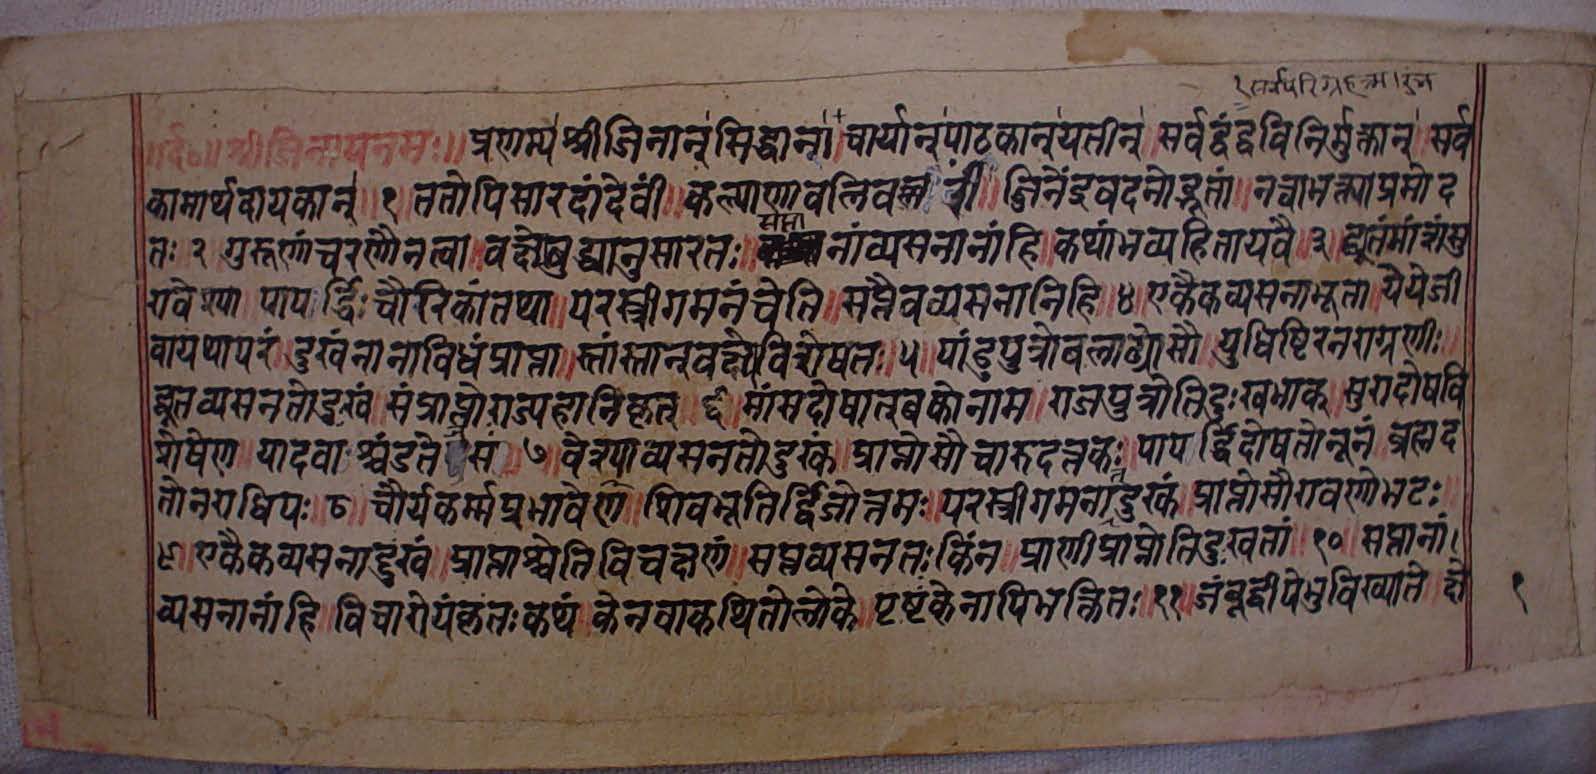 १ सर्वपरिग्रह
॥र्द०॥ श्रीजिनायनमः॥ प्रणम्य श्रीजिनान् सिद्धाना॥चार्यान् पाठकान् यतीन्॥सर्वद्वंद्वविनिर्मुक्तान्॥सर्व
कामार्थदायकान्॥१॥ततोपिसारदांदेवीं॥कल्पाणावलिवल्लरीं॥जिनेंद्रवदनोद्भूतां॥नत्वाभक्त्याप्रमोद
तः२॥गुरूणांचरणौनत्वा॥वक्ष्येबुद्ध्यानुसारतः॥सप्तानांव्यसनानांहि॥कथांभव्यहितायवै॥३॥द्यूतंमांशंसु
रावेश्या॥पापर्द्धिःचौरिकांतथा॥परस्त्रीगमनंचेति॥सप्तैवव्यसनानिहि॥४॥एकैकव्यसनाभूता॥येयेजी
वायथापरं॥दुखंनानाविधंप्राप्ता॥स्तांस्तान्वक्ष्येविशेषतः॥५॥पांडुपुत्रोवलाग्रोसौ॥युधिष्टिरनराग्रणीः॥
द्यूतव्यसनतोदुखं॥संप्राप्तोराज्यहानिकृत्॥६॥मांसदोषात्बकोनाम॥राजपुत्रोतिदुःखभाक्॥सुरादोषवि
शेषेण॥यादवाश्चंडते सं॥७॥वेश्याव्यसनतोदुखं॥प्राप्तोसौचारुदत्तकः॥पापर्द्धिदोषतोनूनं॥ब्रह्मद
तोनराधिपः॥८॥चौर्यकर्म्मप्रभावेण॥शिवभूतिर्द्विजोत्तमः॥परस्त्रीगमनाद्दुखं॥प्राप्तोसौरावणोभटः॥
९॥एकैकव्यसनाद्दुखं॥प्राप्ताश्चेतिविचक्षणं॥सप्तव्यसनतःकिंन॥प्राणीप्राप्नोतिदुखतां॥१०॥सप्तानां।
व्यसनानांहि॥विचारोयंकृतःकथं॥केनवाकथितोलोके॥पृष्टंकेनापिभक्तितः॥११॥जंबूद्वीपेसुविख्याते॥क्षे
१